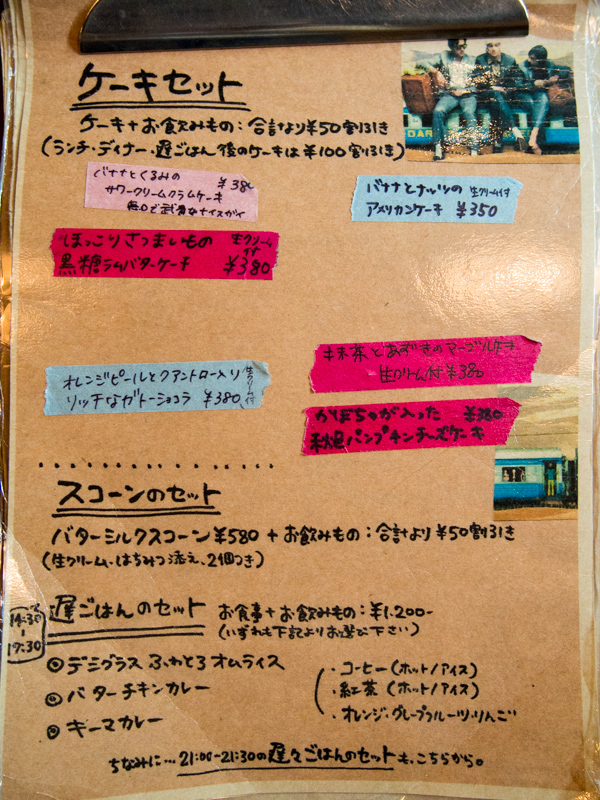 ケーキセット
ケーキ+お飲みもの:合計より¥50割引き
(ランチ・ディナー・遅ごはん後のケーキは¥100割引き)
バナナとくるみの ¥380
サワークリームクラムケーキ
バナナとナッツの 生クリーム付
アメリカンケーキ ¥350
ほっこりさつまいもの 生クリーム付
黒糖ラムバターケーキ ¥380
抹茶とあずきのマーブル
生クリーム付 ¥380
オレンジピールとクアントロー入り 生クリーム付
リッチなガトーショコラ ¥380
かぼちゃが入った ¥380
秋色パンプキンチーズケーキ
スコーンのセット
バターミルクスコーン¥580+お飲みもの:合計より¥50割引き
(生クリーム、はちみつ添え、2個つき)
14:30
-
17:30
遅ごはんのセット お食事+お飲みもの:¥1,200-
(いずれも下記よりお選び下さい)
◎デミグラス ふわとろオムライス
◎バターチキンカレー
◎キーマカレー
・コーヒー(ホット/アイス)
・紅茶(ホット/アイス)
・オレンジ・グレープフルーツ・りんご
ちなみに…21:00-21:30の遅々ごはんのセットも、こちらから。